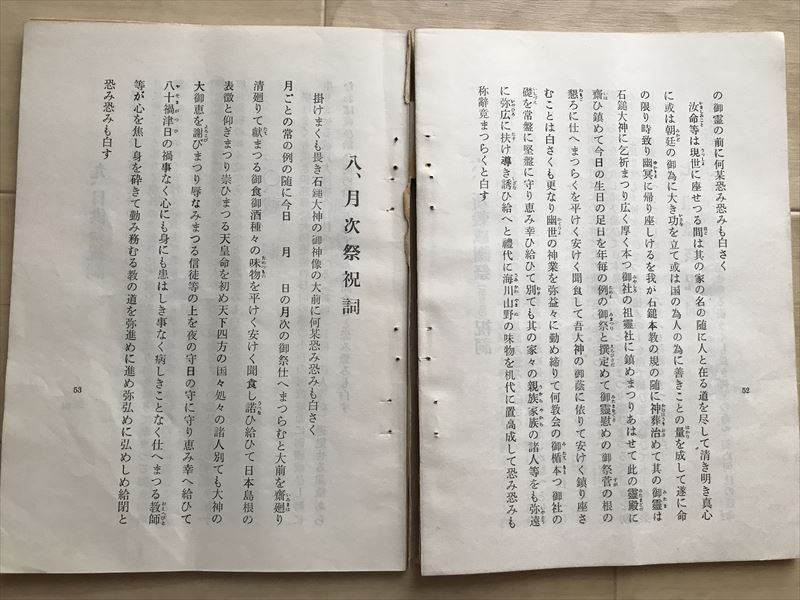 の御霊の前に何某恐み恐みも白さく
汝命等は現世に座せつる間は其の家の名の随に人と在る道を尽して清き明き真心
に或は朝廷の御為に大き功を立て或は国の為人の為に善きことの量を成して遂に命
の限り時致り幽冥に帰り座しけるを我が石鎚本教の規の随に神葬治めて其の御靈は
石鎚大神に乞祈まつり広く厚く本つ御社の祖靈社に鎮めまつりあはせて此の靈殿に
齋ひ鎮めて今日の生日の足日を年毎の例の御祭と撰定めて御靈慰めの御祭菅の根の
懇ろに仕へまつらくを平けく安けく聞食して吾大神の御蔭に依りて安けく鎮り座さ
むことは白さくも更なり幽世の神業を弥益々に勤め締りて何教会の御楯本つ御社の
礎を常盤に堅盤に守り恵み幸ひ給ひて別ても其の家々の親族家族の諸人等をも弥遠
に弥広に扶け導き誘ひ給へと禮代に海川山野の味物を机代に置高成して恐み恐みも
称辞竟まつらくと白す
52
八、月次祭祝詞
掛けまくも畏き石鎚大神の御神像の大前に何某恐み恐みも白さく
月ごとの常の例の随に今日　月　日の月次の御祭仕へまつらむと大前を齋廻り
清廻りて献まつる御食御酒種々の味物を平けく安けく聞食し諾ひ給ひて日本島根の
表徴と仰ぎまつり崇ひまつる天皇命を初め天下四方の国々処々の諸人別ても大神の
大御恵を謝びまつり辱なみまつる信徒等の上を夜の守日の守に守り恵み幸へ給ひて
八十禍津日の禍事なく心にも身にも患はしき事なく病しきことなく仕へまつる教師
等が心を焦し身を砕きて勤み務むる教の道を弥進めに進め弥弘めに弘めしめ給閇と
恐み恐みも白す
53